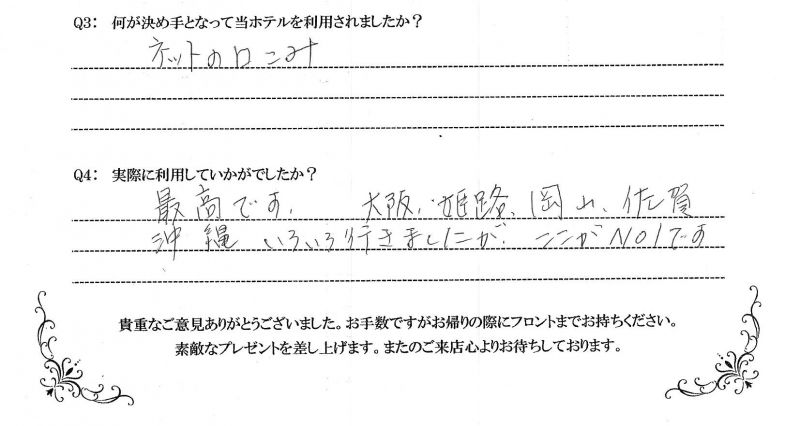 Q3: 何が決め手となって当ホテルを利用されましたか？
ネットの口コミ
Q4: 実際に利用していかがでしたか？
最高です. 大阪、姫路、岡山、佐賀
沖縄 いろいろ行きましたが. ここがNO1です
貴重なご意見ありがとうございました。お手数ですがお帰りの際にフロントまでお持ちください。
素敵なプレゼントを差し上げます。またのご来店心よりお待ちしております。